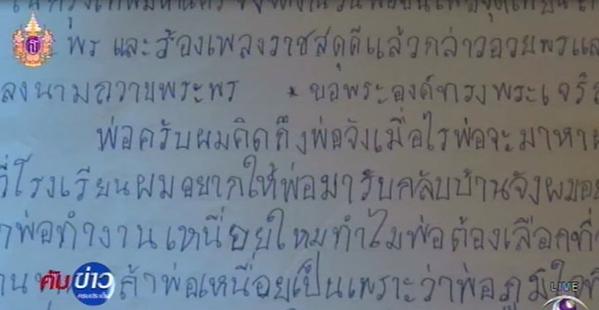 พร และร้องเพลงราชสดุดีแล้วกล่าวอวยพรและ
ลงนามถวายพระพร * ขอพระองค์ทรงพระเจริ
พ่อครับผมคิดถึงพ่อจังเมื่อไรพ่อจะมาหาผ
ที่โรงเรียนผมอยากให้พ่อมารับกลับบ้านจังผมอย
พ่อทำงานเหนื่อยไหมทำไมพ่อต้องเลือกที่
ถ้าพ่อเหนื่อยเป็นเพราะว่าพ่อภูมิใจที่
คันข่าว
ครบประเด็น
LIVE